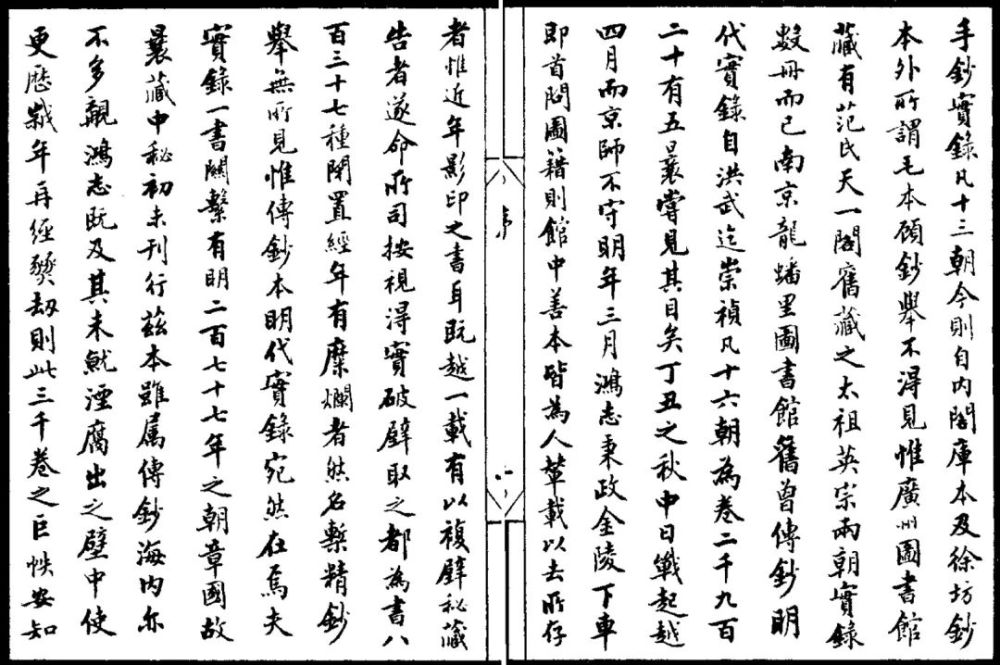 手鈔實錄凡十三朝今則自內閣庫本及徐坊鈔
本外所謂毛本顧鈔舉不得見惟廣州圖書館
藏有范氏天一閣舊藏之太祖英宗兩朝實錄
數冊而已南京龍蟠里圖書館舊曾傳鈔明
代實錄自洪武迄崇禎凡十六朝為卷二千九百
二十有五曩嘗見其目矣丁丑之秋中日戰起越
四月而京師不守明年三月鴻志秉政金陵下車
即首問圖籍則館中善本皆為人輦載以去所存
序
一
者惟近年影印之書耳既越一載有以複壁秘藏
告者遂命所司按視得實破壁取之都為書八
百三十七種閉置經年有糜爛者然名槧精鈔
舉無所見惟傳鈔本明代實錄宛然在焉夫
實錄一書關繫有明二百七十七年之朝章國故
曩藏中秘初未刊行茲本雖屬傳鈔海內亦
不多覯鴻志既及其未魷湮腐出之壁中使
更歷數年再經燹劫則此三千卷之巨帙安知